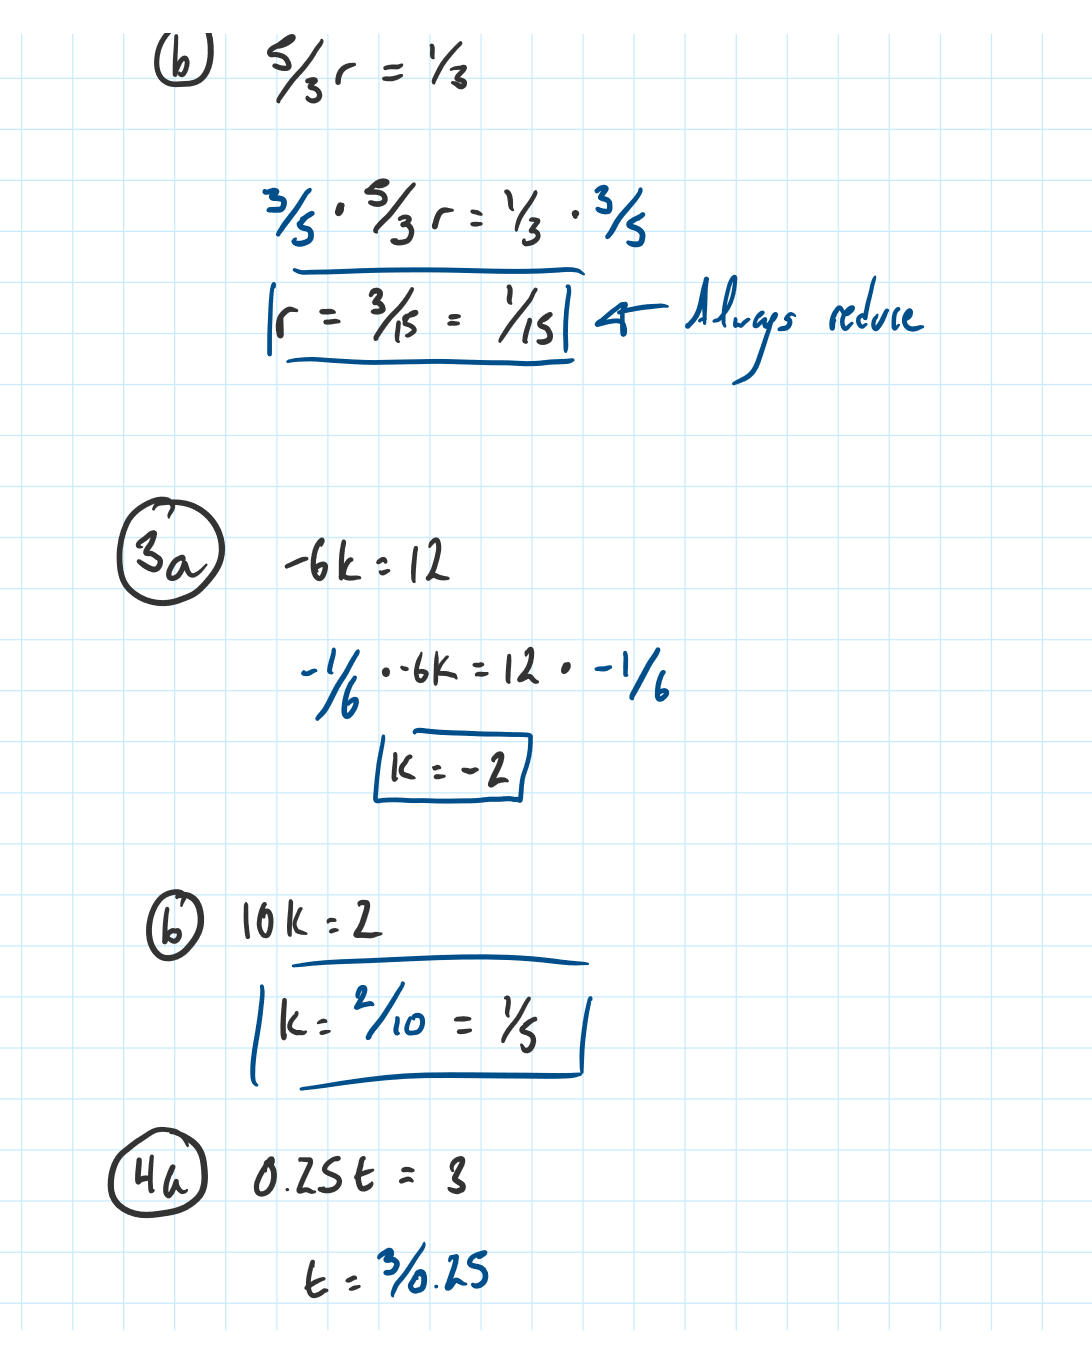 (b) 5/3 r = 1/3
3/5 · 5/3 r = 1/3 · 3/5
r = 3/15 = 1/15 ← Always reduce
3a -6k = 12
-1/6 · -6k = 12 · -1/6
k = -2
b 10k = 2
k = 2/10 = 1/5
4a 0.25t = 3
t = 3/0.25